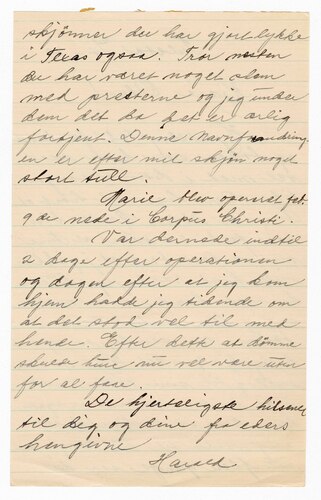 skjønner du har gjort lykke
i Texas ogsaa. Tror næsten
de har været noget slem
med presterne og jeg under
dem det da det er ærlig
fortjent. Denne Navnforandring
en er efter mit skjøn noget
stort tull.
Marie blev operert feb.
9 de nede i Corpus Christi.
Var dernede indtil
2 dage efter operationen
og dagen efter at jeg kom
hjem hadde jeg tidende om
at det stod vel til med
hende. Efter dette at dømme
skulde hun nu vel være uten
for al fare.
De hjerteligste hilsener
til dig og dine fra eders
hengivne
Harald